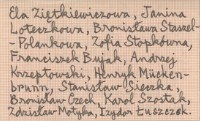 Ela Ziętkiewiczowa, Janina
Loteczkowa, Bronisława Staszel-
-Polankowa, Zofia Stopkówna,
Franciszek Bujak, Andrzej
Krzeptowski, Henryk Mücken-
brunn, Stanisław Sieczka,
Bronisław Czech, Karol Szostak,
Zdzisław Motyka, Izydor Łuszczek.